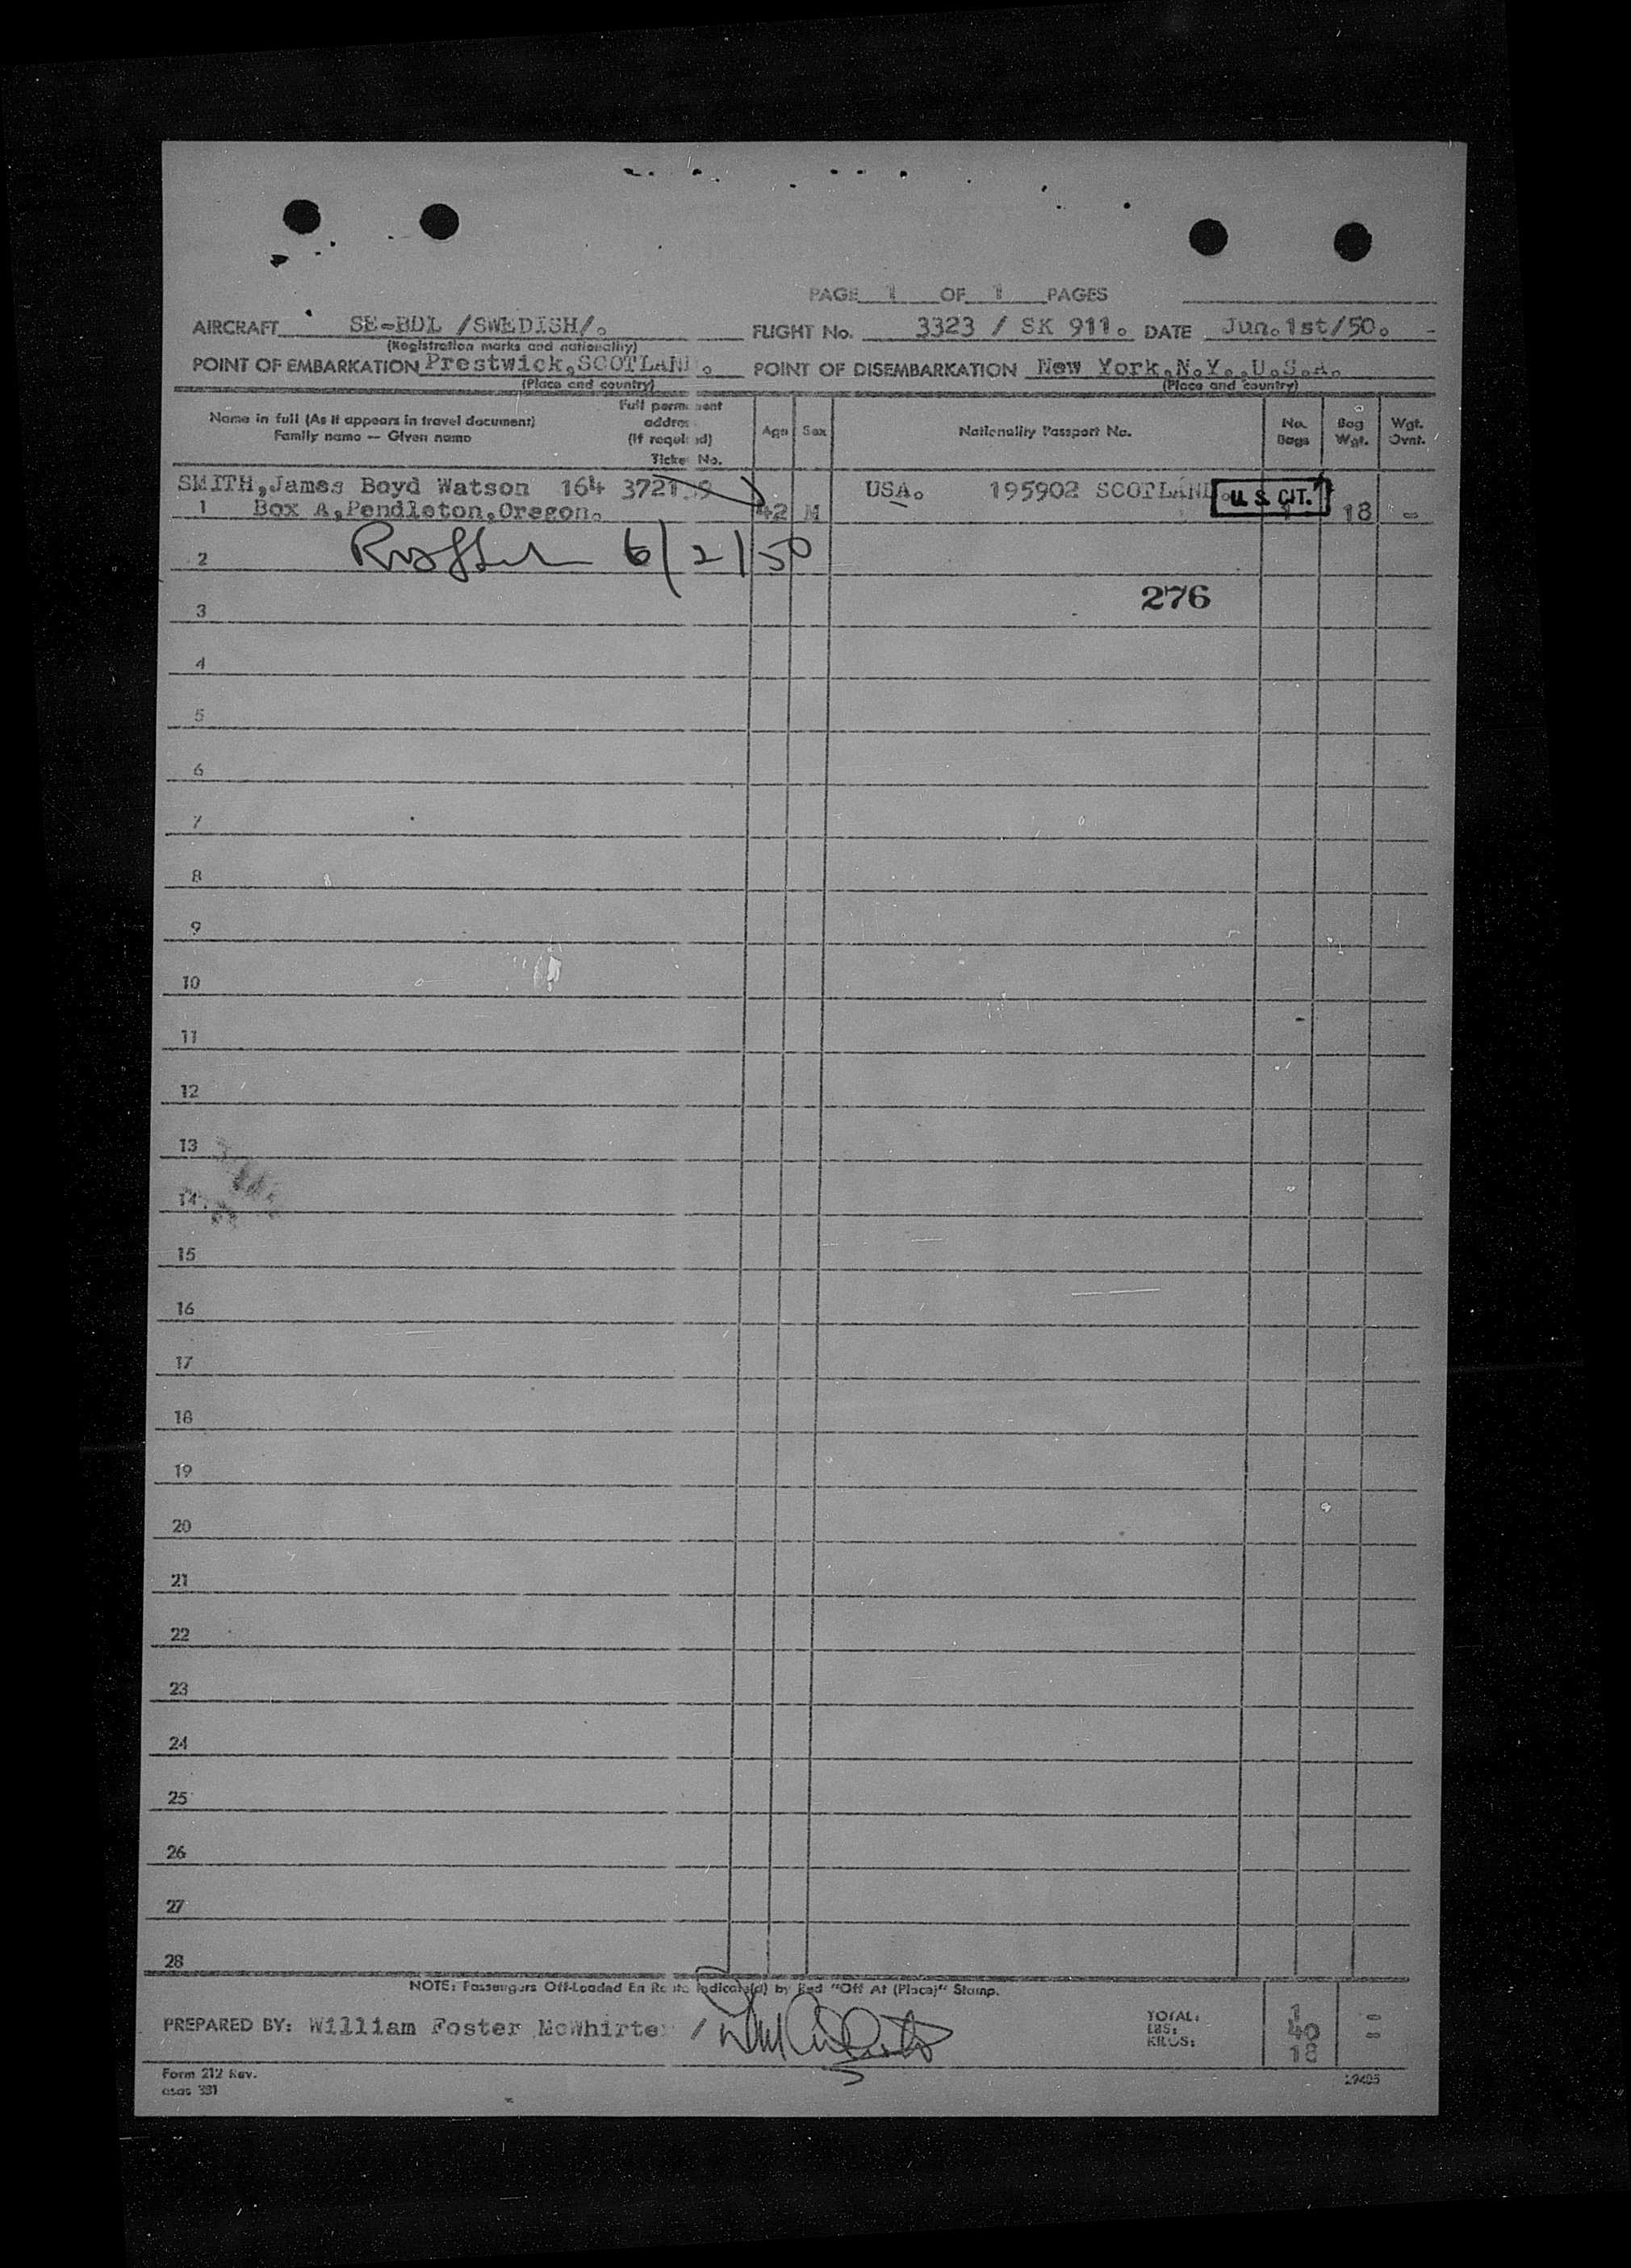 PAGE 1 OF 1 PAGES
AIRCRAFT SE-BDL /SWEDISH/. FLIGHT No. 3323 / SK 911. DATE Jun.1st/50. -
(Registration marks and nationality)
POINT OF EMBARKATION Prestwick,SCOTLAND. POINT OF DISEMBARKATION New York,N.Y.,U.S.A.
(Place and country) (Place and country)
Name in full (As it appears in travel document) Family name — Given name Full permanent address (If required) Ticket No. Age Sex Nationality Passport No. No. Bags Bag Wgt. Wgt. Ovnt.
SMITH,James Boyd Watson 164 USA. 195902 SCOTLAND. U. S. CIT.
1 Box A,Pendleton,Oregon. 42 M 1 18 -
2 6/2/50
3 276
4
5
6
7
8
9
10
11
12
13
14
15
16
17
18
19
20
21
22
23
24
25
26
27
28
NOTE: Passengers Off-Loaded En Route Indicate(d) by Red "Off At (Place)" Stamp.
PREPARED BY: William Foster McWhirter /
TOTAL: 1 -
LBS: 40 =
KILOS: 18
Form 212 Rev.